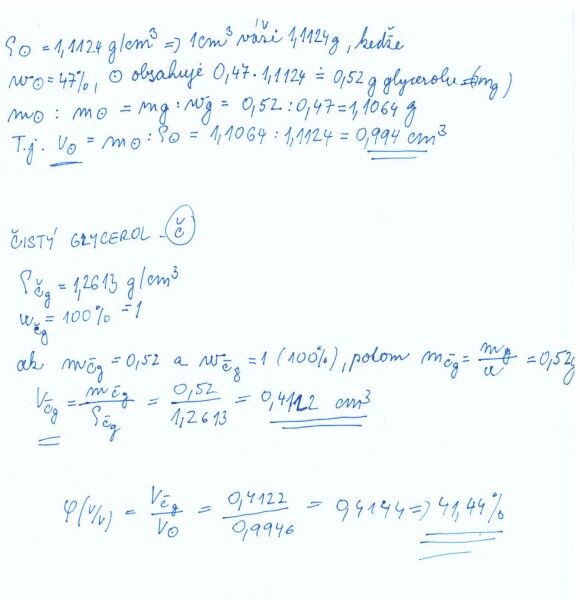 ρ⊙ = 1,1124 g/cm³ => 1cm³ váži 1,1124g, kedže
w⊙ = 47%, ⊙ obsahuje 0,47 · 1,1124 ≐ 0,52 g glycerolu (mg)
m⊙ : m⊙ = mg : wg = 0,52 : 0,47 = 1,1064 g
T.j. V⊙ = m⊙ : ρ⊙ = 1,1064 : 1,1124 = 0,994 cm³
ČISTÝ GLYCEROL - č
ρčg = 1,2613 g/cm³
wčg = 100% = 1
ak mčg = 0,52 a wčg = 1 (100%), potom mčg = mg/w = 0,52g
Včg = mčg/ρčg = 0,52/1,2613 = 0,4122 cm³
φ(v/v) = Včg/V⊙ = 0,4122/0,9946 = 0,4144 => 41,44%